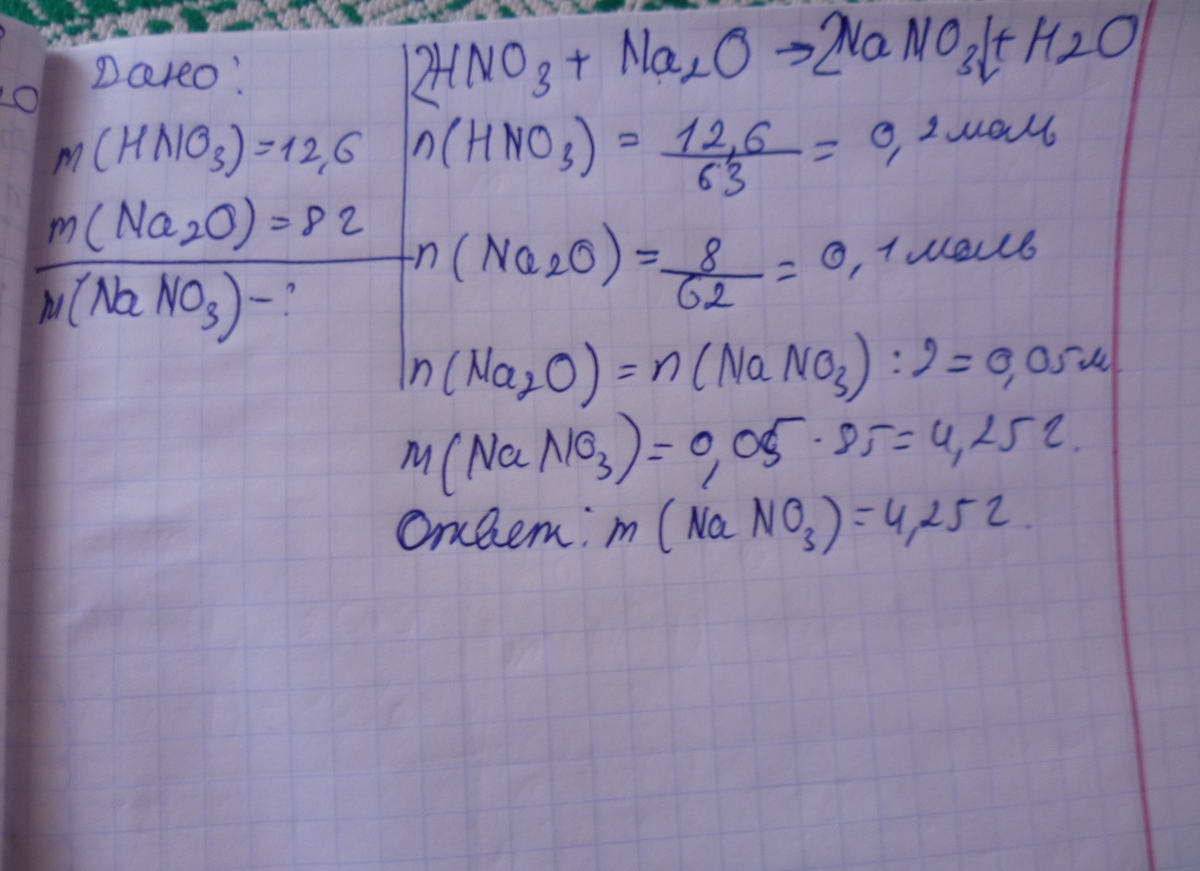 Дано:
m(HNO3)=12,6
m(Na2O)=8г
m(NaNO3)-?
2HNO3+ Na2O →2NaNO3↓+H2O
n(HNO3) = 12,6/63 = 0,2моль
n(Na2O)= 8/62 = 0,1моль
n(Na2O)=n(NaNO3):2=0,05м
m(NaNO3)=0,05·85=4,25г.
Ответ: m(NaNO3)=4,25г.